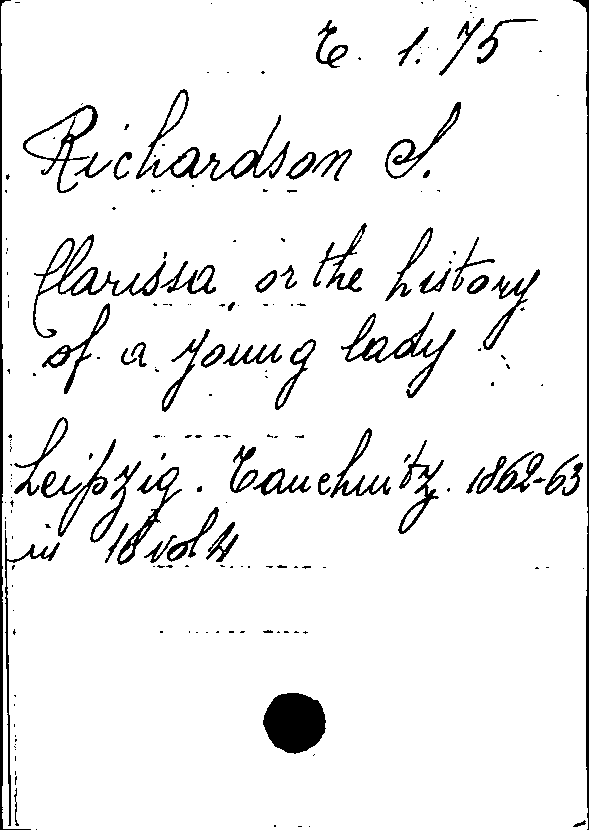 T. 1. 75
Richardson S.
Clarissa, or the history
of a young lady
Leipzig. Tauchnitz. 1862-63
in 16° vol 4